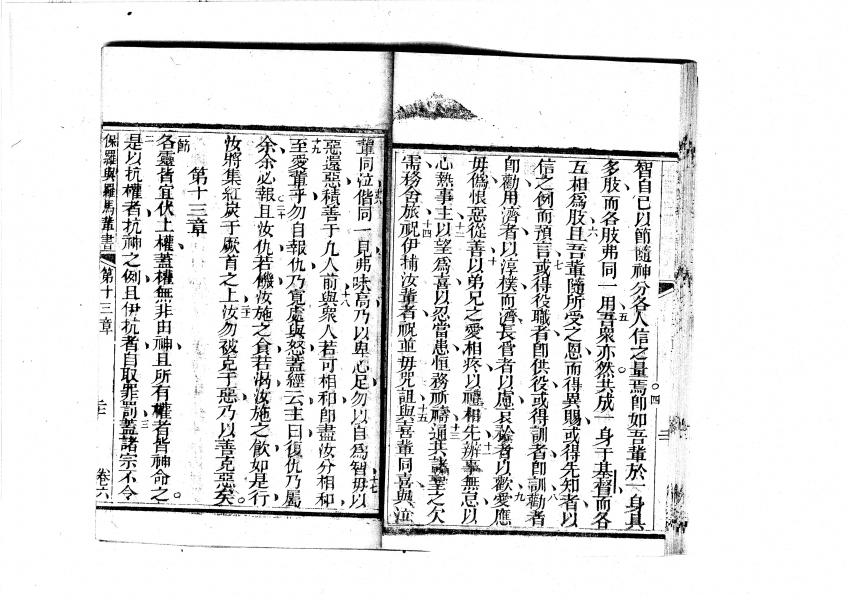 智自已以節隨神分各人信之量焉四即如吾輩於一身具
多肢而各肢弗同一用五吾眾亦然共成一身于基督而各
互相為肢六且吾輩隨所受之恩而得異賜或得先知者以
信之例而預言七或得役職者即供役或得訓者即訓八勸者
即勸用濟者以淳樸而濟長管者以慮哀諭者以歡九愛應
毋偽恨惡從善十以弟兄之愛相疼以禮相先十一辦事無怠以
心熱事主十二以望為喜以忍當患恒務祈禱十三通共諸聖之欠
需務舍旅十四祝伊捕汝輩者祝並毋咒詛十五與喜輩同喜與泣
輩同泣十六偕同一見弗味高乃以卑心足勿以自為智十七毋以
惡還惡積善于凡人前與眾人十八若可相和即盡汝分相和
十九至愛輩乎勿自報仇乃寬處與怒蓋經云主曰復仇乃屬
余余必報二十且汝仇若饑汝施之食若渴汝施之飲如是行
汝將集紅炭于厥首之上二一汝勿被克于惡乃以善克惡矣
第十三章
一節各靈皆宜伏上權蓋權無非由神且所有權者皆神命之
二是以抗權者抗神之例且伊抗者自取罪罰三蓋諸宗不令
保羅與羅馬輩書 第十三章 卷六